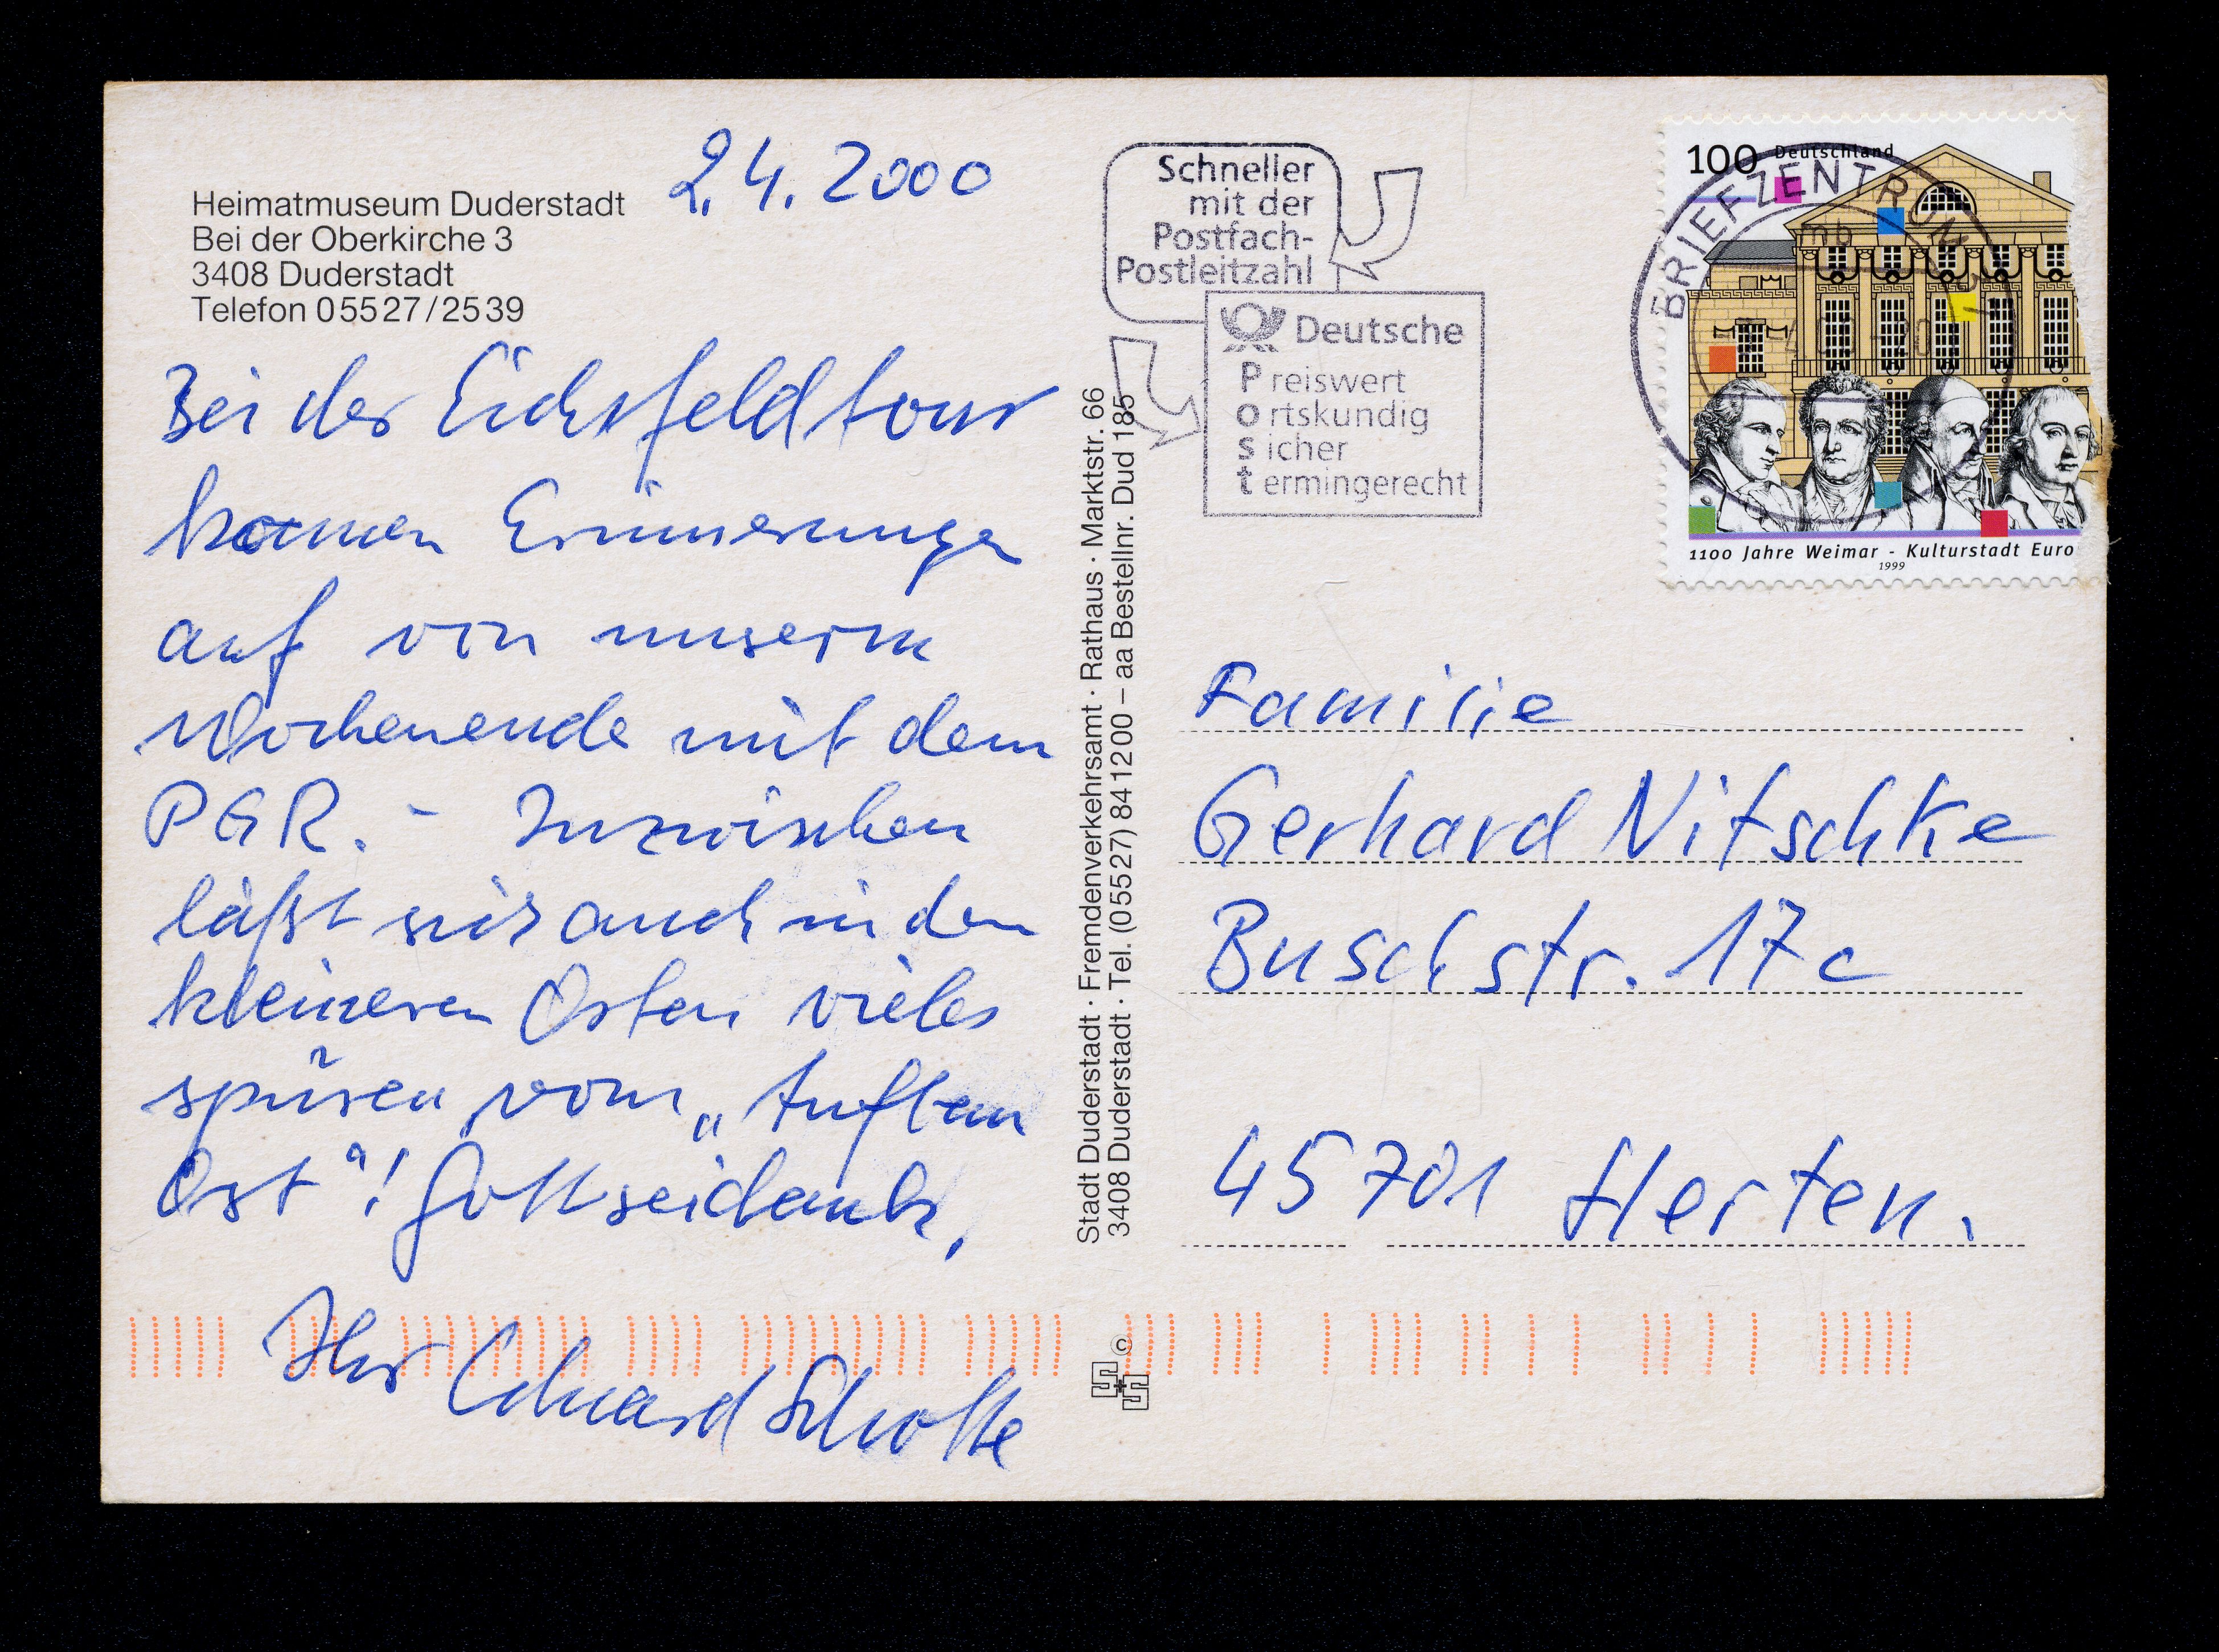 2.4. 2000
Heimatmuseum Duderstadt
Bei der Oberkirche 3
3408 Duderstadt
Telefon 05527/2539
Bei der Eichsfeldtour
kamen Erinnerungen
auf von unserm
Wochenende mit dem
PGR. - Inzwischen
läßt sich auch in den
kleineren Orten vieles
spüren vom „Aufbau
Ost"! Gottseidank,
Ihr Eduard Scholte
Stadt Duderstadt · Fremdenverkehrsamt · Rathaus · Marktstr. 66
3408 Duderstadt · Tel. (05527) 841200 – aa Bestellnr. Dud 185
©
S+S
Schneller
mit der
Postfach-
Postleitzahl
Deutsche
Preiswert
Ortskundig
Sicher
termingerecht
100 Deutschland
BRIEFZENTRUM
mb
1100 Jahre Weimar - Kulturstadt Euro
1999
Familie
Gerhard Nitschke
Buschstr. 17c
45701 Herten.